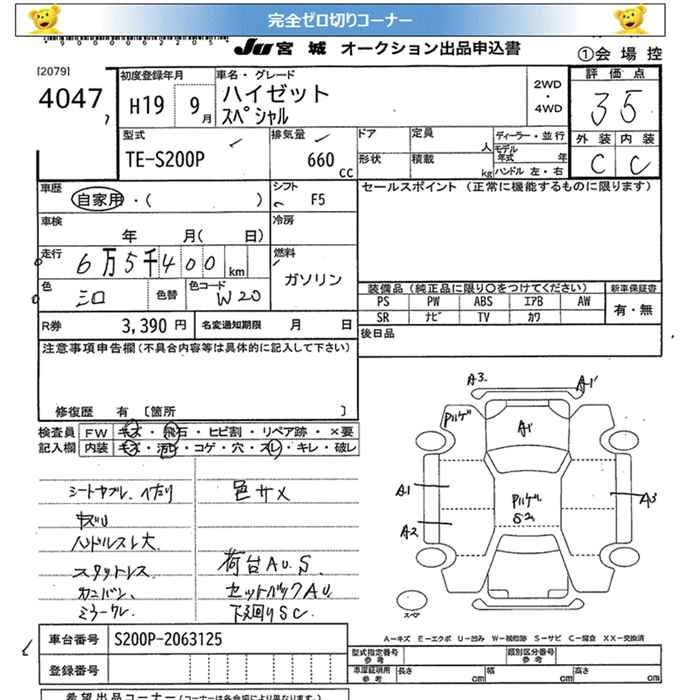 完全ゼロ切りコーナー
JU 宮城 オークション出品申込書
①会場控
[2079]
4047
初度登録年月
H19 9月
車名・グレード
ハイゼット
スペシャル
2WD
・
4WD
評価点
35
外装 内装
C C
型式
TE-S200P
排気量
660
CC
ドア
形状
定員
人
積載
kg
ディーラー・並行
モデル年式 年
ハンドル 左・右
車歴
自家用・( )
シフト
F5
セールスポイント (正常に機能するものに限ります)
車検
年 月( 日)
冷房
走行
6万5千400km
燃料
ガソリン
色
シロ
色替
色コード
W20
装備品 (純正品に限り○をつけてください)
新車保証書
PS PW ABS エアB AW
SR ナビ TV カワ
有・無
R券
3,390円
名変通知期限 月 日
後日品
注意事項申告欄(不具合内容等は具体的に記入して下さい)
修復歴 有 〔箇所 〕
検査員記入欄
FW キズ・飛石・ヒビ割・リペア跡・×要
内装 キズ・汚れ・コゲ・穴・スレ・キレ・破レ
シートヤブレ、ヘタり
色サメ
キズU
ハンドルスレ大
スタットレス
荷台AU、S
セットバックAU
ミラーワレ
下廻りSC
A3
A1
ハゲ
A1
A1
A2
ハゲ
A3
スペア
A-キズ E-エクボ U-凹み W-補修跡 S-サビ C-腐食 XX-交換済
車台番号
S200P-2063125
登録番号
型式指定番号
参考
類別区分番号
参考
車庫証明用
参考
長さ cm
幅 cm
高さ cm
希望出品コーナー(コーナーは各会場により異なります)